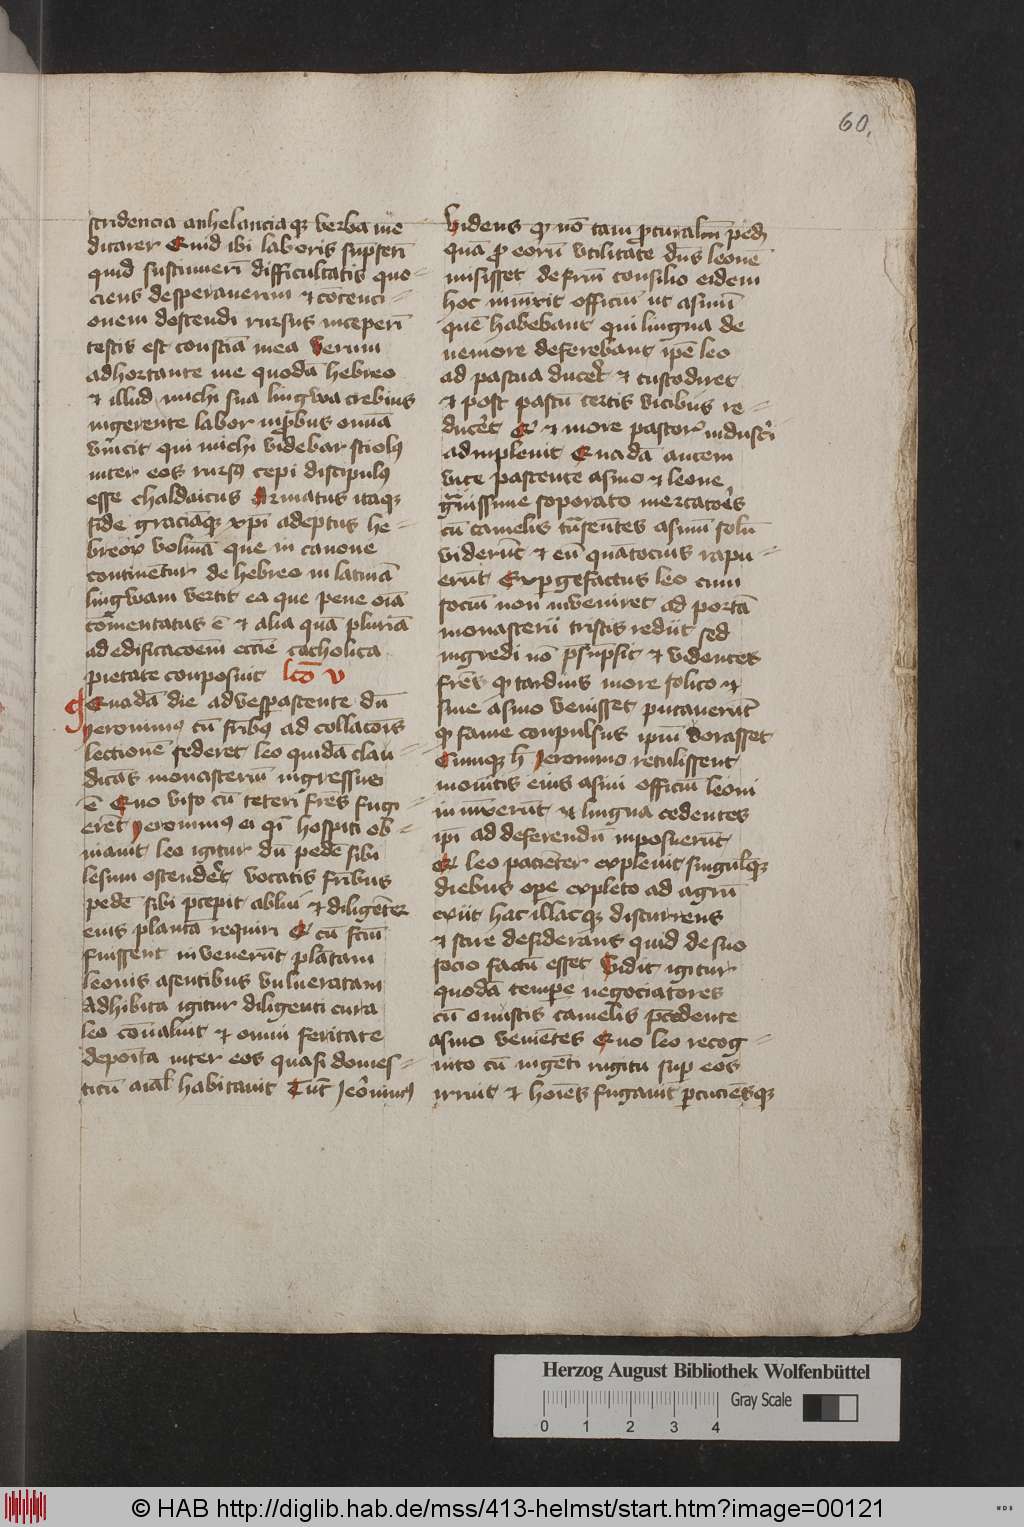 60.
stridencia anhelanciaqꝫ verba me
ditarer Quid ibi laboris supserī
quid sustinuerī difficultatis quo-
ciens desperauerim ⁊ cōtenci-
onem dostendi rursus inceperī
testis est consciā mea Verum
adhortante me quodā hebreo
⁊ illud michi sua lingwa crebius
ingerente labor inprobus omnā
vincit qui michi videbar sciolꝰ
inter eos rursꝰ cepi discipulꝰ
esse chaldaicus Armatus itaqꝫ
fide graciāqꝫ xpī adeptus he-
breoꝝ volmā que in canone
continētur de hebreo in latinā
lingwam vertit ea que pene oīā
cōmentatus ē ⁊ alia quā plurīā
ad edificacoēm eccīe catholica
pietate conposuit lcō v
Quadā die advespascente dū
Jeronimꝰ cū fribꝰ ad collacōīs
lectionē sederet leo quidā clau-
dicās monasteriū īngressurꝰ
ē Quo viso cū ceteri frēs fugi-
erēt Jeronimꝰ ei qī hospiti ob-
uiauit leo igitur dū pedē sibi
lesum ostenderet vocatis fribus
pedē sibi precepit ablui ⁊ diligēter
eius planta requiri Et cū fcm̄
fuissent invenerūt plātam
leonis a sentibus vulneratam
Adhibita igitur diligenti cura
leo cōualuit ⁊ omni feritate
deposīta inter eos quasi domes-
ticū aīal habitauit Tūc Jeōnimꝰ
Videns qꝫ nō tam pro curalm̄ pedꝫ
quā pro eorū vtilitate dn̄s leonē
misisset de frm̄ consilio eidem
hoc iniūxit officiū ut asinū
quē habebant qui lingna de
nemore deferebant ipē leo
ad pascua duceret ⁊ custodiret
⁊ post pastū certis vicibus re-
duceret Et ⁊ more pastoris industrī
adinplenit Quadā autem
vice pascente asino ⁊ leone
grauissime soporato mercatoēs
cū camelis trāseuntes asinū solū
viderūt ⁊ eū quātocius rapu-
erūt Expergefactus leo cum
sociū non inveniret ad portā
monasterii tristis rediit sed
ingredi nō presupsit ⁊ videntes
frēs qꝫ tardius more solito ⁊
sine asino venisset putauerūt
qꝫ fame conpulsus ipm̄ vorasset
Cumqꝫ h̄ Jeronimo retulissent
monitis eius asini officiū leoni
iniūxerūt ⁊ lingna cedentes
ipī ad deferendū inposuerūt
Et leo paciēter expleuit singulisqꝫ
diebus ope expleto ad agrū
exiit hac illacqꝫ discurrens
⁊ scire desiderans quid de suo
socio factū esset Vidit igitur
quodā tempore negociatores
cū onustis camelis precedente
asino veniētes Quo leo recog-
nito cū ingēti rugitu super eos
irruit ⁊ hoīēs fugauit percuciēsqꝫ
Herzog August Bibliothek Wolfenbüttel
Gray Scale
0 1 2 3 4
© HAB http://diglib.hab.de/mss/413-helmst/start.htm?image=00121
WDB